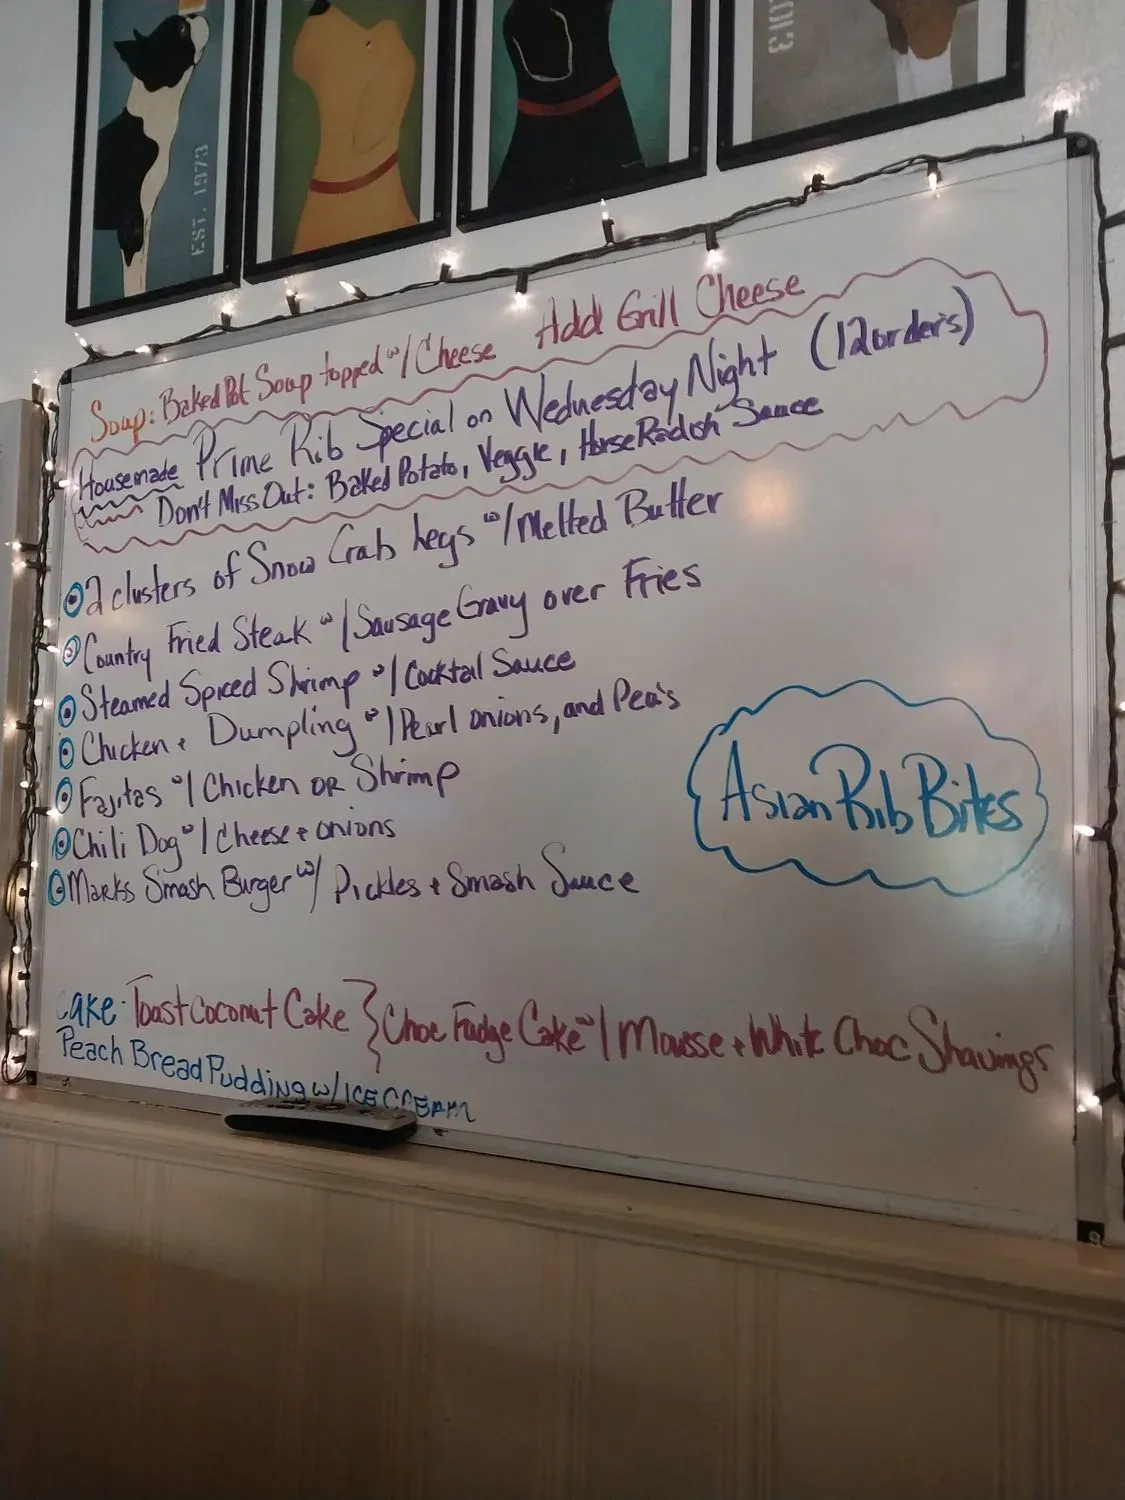 EST. 1973
EST.
Soup: Baked Pot Soup topped w/ Cheese Add Grill Cheese
Housemade Prime Rib Special on Wednesday Night (12 order's)
Don't Miss Out: Baked Potato, Veggie, HorseRadish Sauce
2 clusters of Snow Crab Legs w/ Melted Butter
Country Fried Steak w/ Sausage Gravy over Fries
Steamed Spiced Shrimp w/ Cocktail Sauce
Chicken + Dumpling w/ Pearl onions, and Pea's
Fajitas w/ Chicken OR Shrimp
Chili Dog w/ Cheese + onions
Marks Smash Burger w/ Pickles + Smash Sauce
Asian Rib Bites
Cake: Toast Coconut Cake } Choc Fudge Cake w/ Mousse + White Choc Shavings
Peach Bread Pudding w/ ICE CREAM